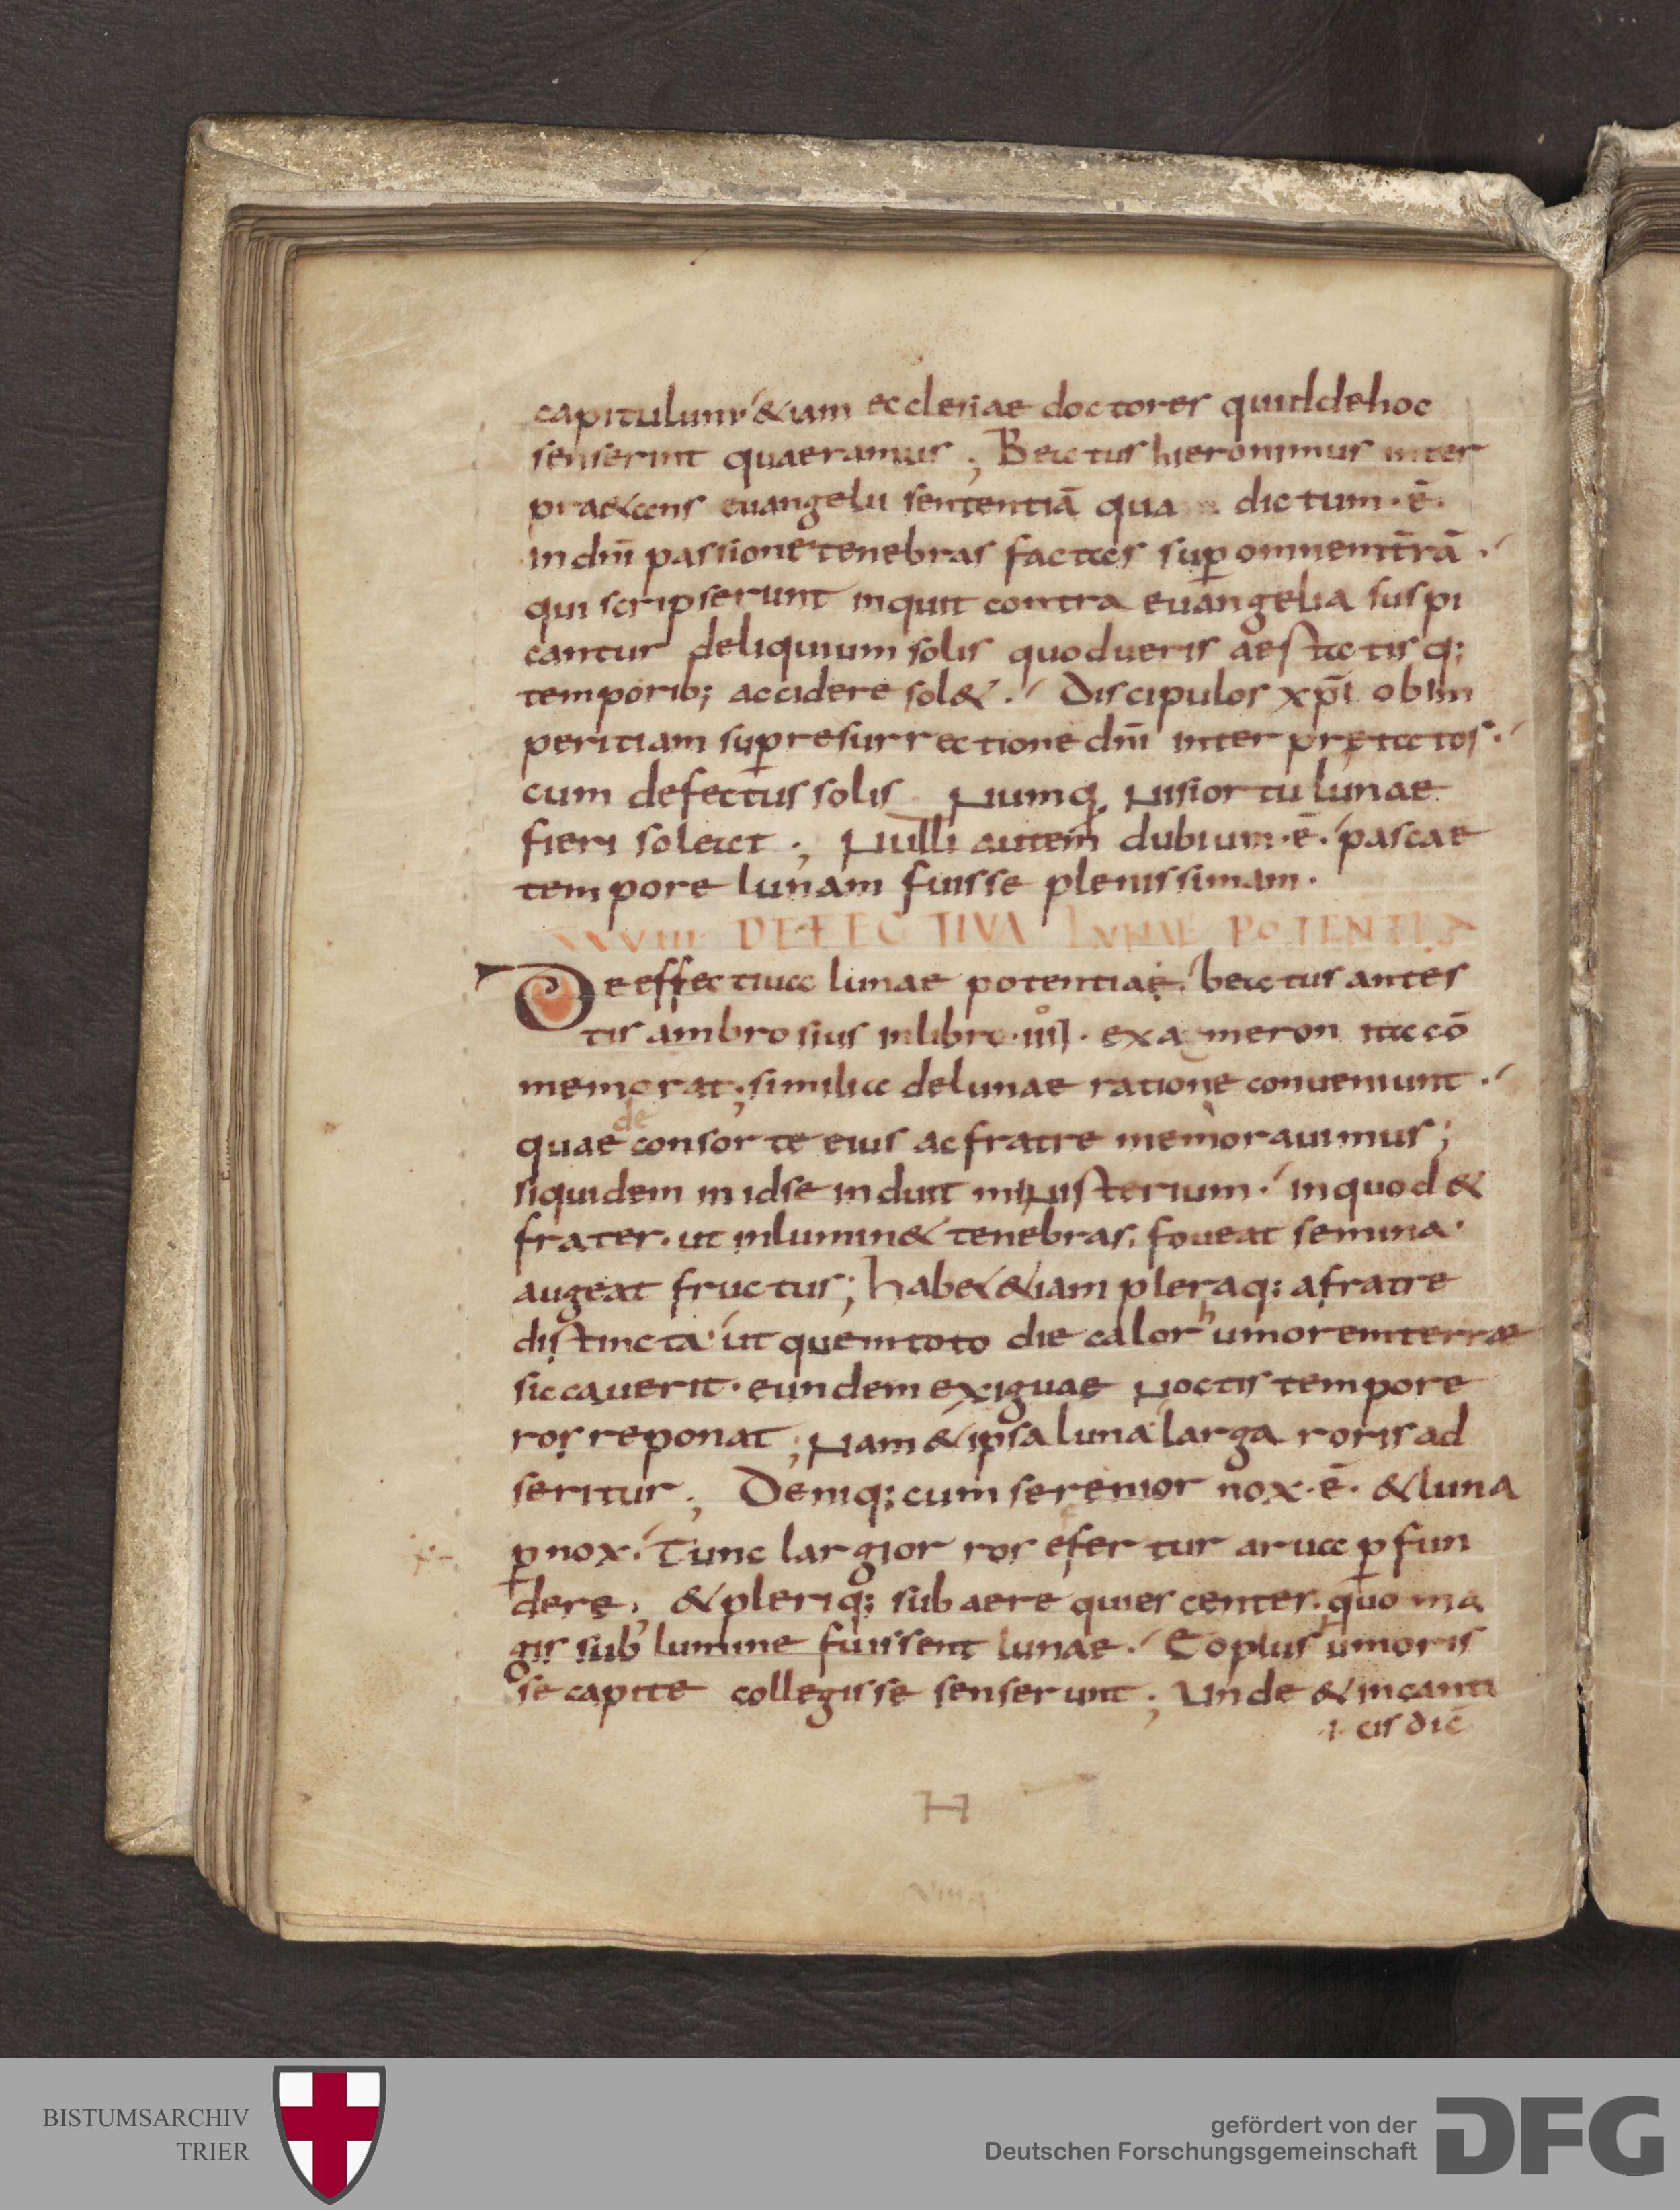 capitulum &iam ecclesiae doctores quid de hoc
senserint quaeramus; Beatus hieronimus inter
pra&ans euangelii sententiā qua dictum · ē ·
in dn̄i passione tenebras factas sup̲ omnem t̄rā ·
qui scripserunt inquit contra euangelia suspi
cantur deliquium solis quod ueris aestatisq;
temporib; accidere sol& · Discipulos xp̄i ob im
peritiam sup̲ resurrectione dn̄i interpretatos ·
cum defectus solis Numq̲ Nisi ortu lunae
fieri soleat; Nulli autem dubium · ē · pascae
tempore lunam fuisse plenissimam ·
XXVIIII DEFECTIVA LVNAE POTENTIA
De effectiua lunae potentiae · beatus antes
tis ambrosius in libro · iiii⁰ · exameron ita cō
memorat; similia de lunae ratione conueniunt ·
de
quae consorte eius ac fratre memorauimus;
siquidem in id se induit miNisterium · in quod &
frater · ut inlumin& tenebras, foueat semina ·
augeat fructus; hab& &iam pleraq; a fratre
distincta · ut quem toto die calor humorem terrae
siccauerit · eundem exiguae Noctis tempore
ros reponat; Nam & ipsa luna larga roris ad
seritur; Deniq; cum serenior nox · ē · & luna
p̲nox · Tunc largior ros efertur arua p̲fun
dere, & pleriq; sub aere quiescentes · quo ma
gis sub lumine fuissent lunae · Eo plus humoris
se capite collegisse senserunt; Unde & in canti
cis dic̄
H
BISTUMSARCHIV
TRIER
gefördert von der
Deutschen Forschungsgemeinschaft
DFG